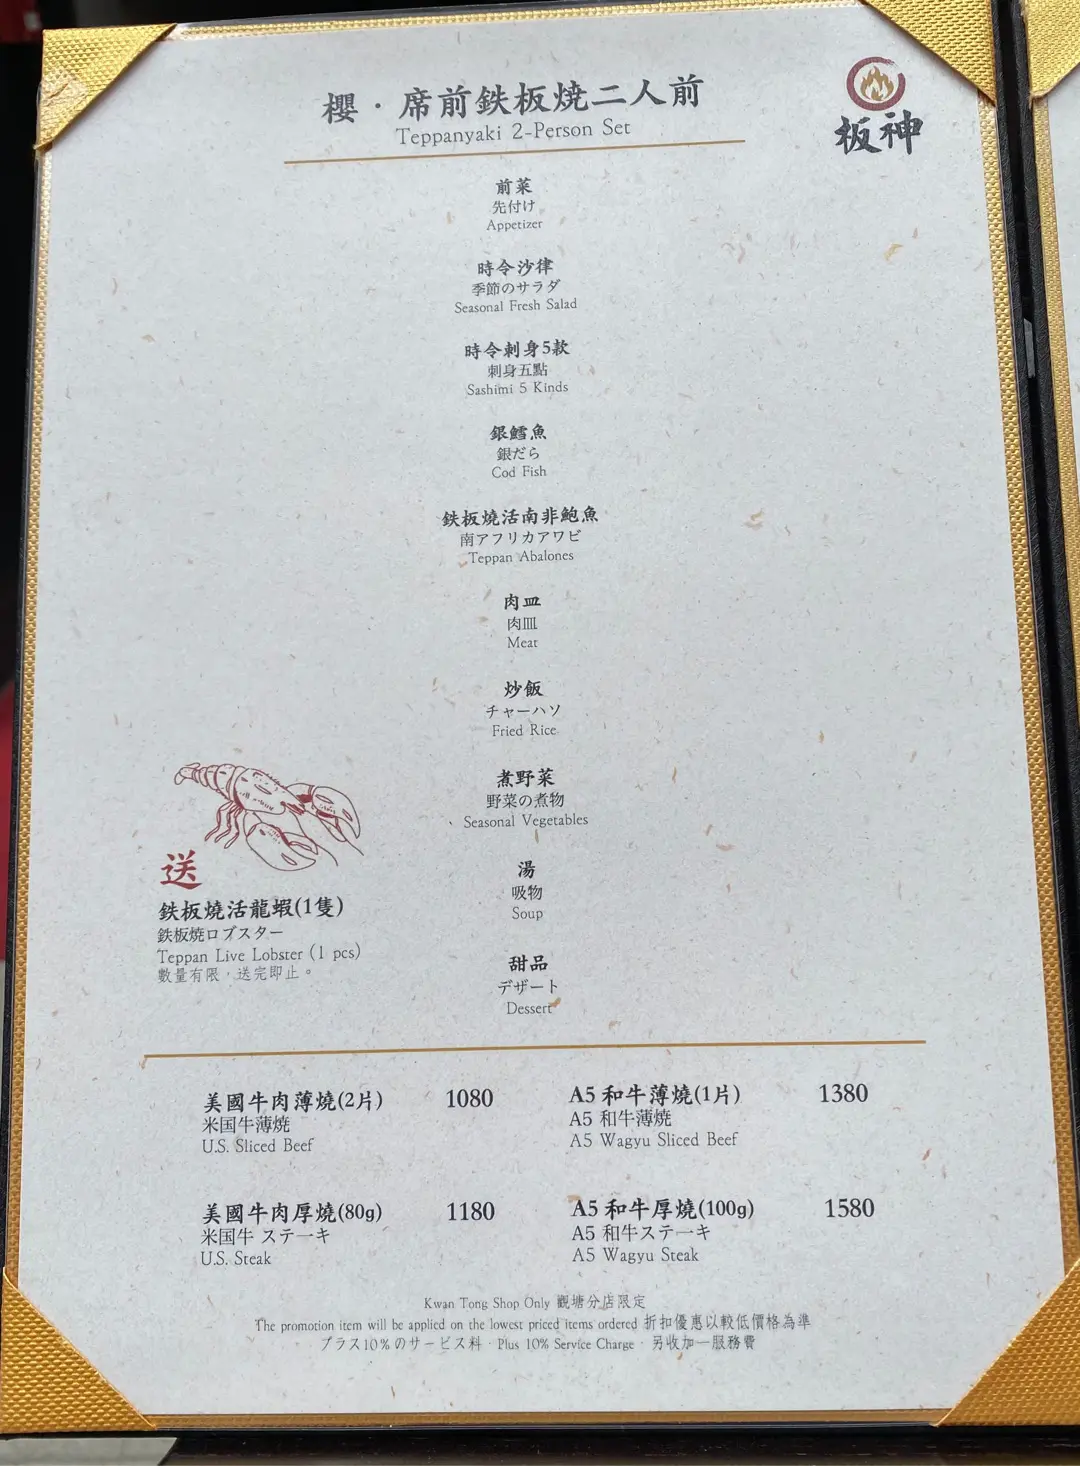 櫻・席前鉄板焼二人前
Teppanyaki 2-Person Set
板神
前菜
先付け
Appetizer
時令沙律
季節のサラダ
Seasonal Fresh Salad
時令刺身5款
刺身五點
Sashimi 5 Kinds
銀鱈魚
銀だら
Cod Fish
鉄板燒活南非鮑魚
南アフリカアワビ
Teppan Abalones
肉皿
肉皿
Meat
炒飯
チャーハソ
Fried Rice
煮野菜
野菜の煮物
Seasonal Vegetables
湯
吸物
Soup
甜品
デザート
Dessert
送
鉄板燒活龍蝦(1隻)
鉄板焼ロブスター
Teppan Live Lobster (1 pcs)
數量有限，送完即止。
美國牛肉薄燒(2片) 1080
米国牛薄焼
U.S. Sliced Beef
A5 和牛薄燒(1片) 1380
A5 和牛薄焼
A5 Wagyu Sliced Beef
美國牛肉厚燒(80g) 1180
米国牛 ステーキ
U.S. Steak
A5 和牛厚燒(100g) 1580
A5 和牛ステーキ
A5 Wagyu Steak
Kwan Tong Shop Only 觀塘分店限定
The promotion item will be applied on the lowest priced items ordered 折扣優惠以較低價格為準
プラス10%のサービス料・Plus 10% Service Charge・另收加一服務費